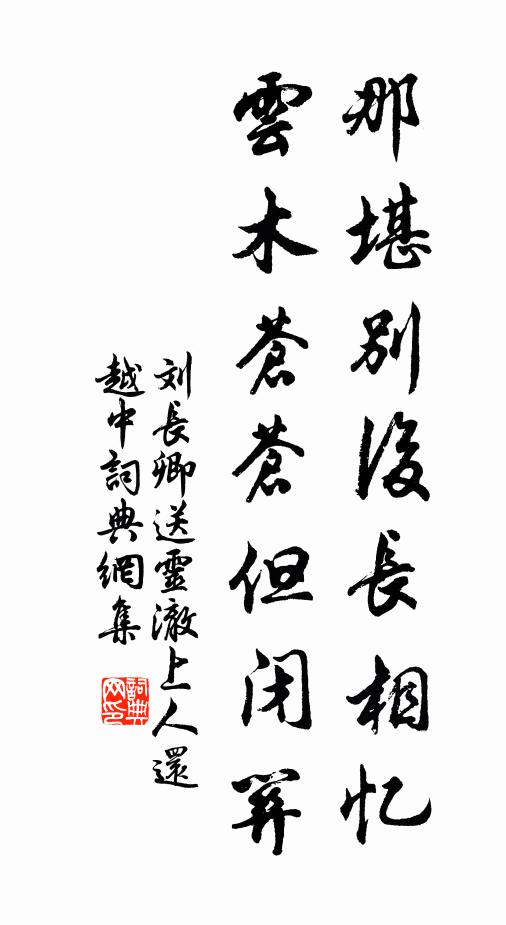 那堪別後長相忆
雲木蒼蒼但闭關
刘長卿送靈澈上人還
越中詞典網集
詞典网印